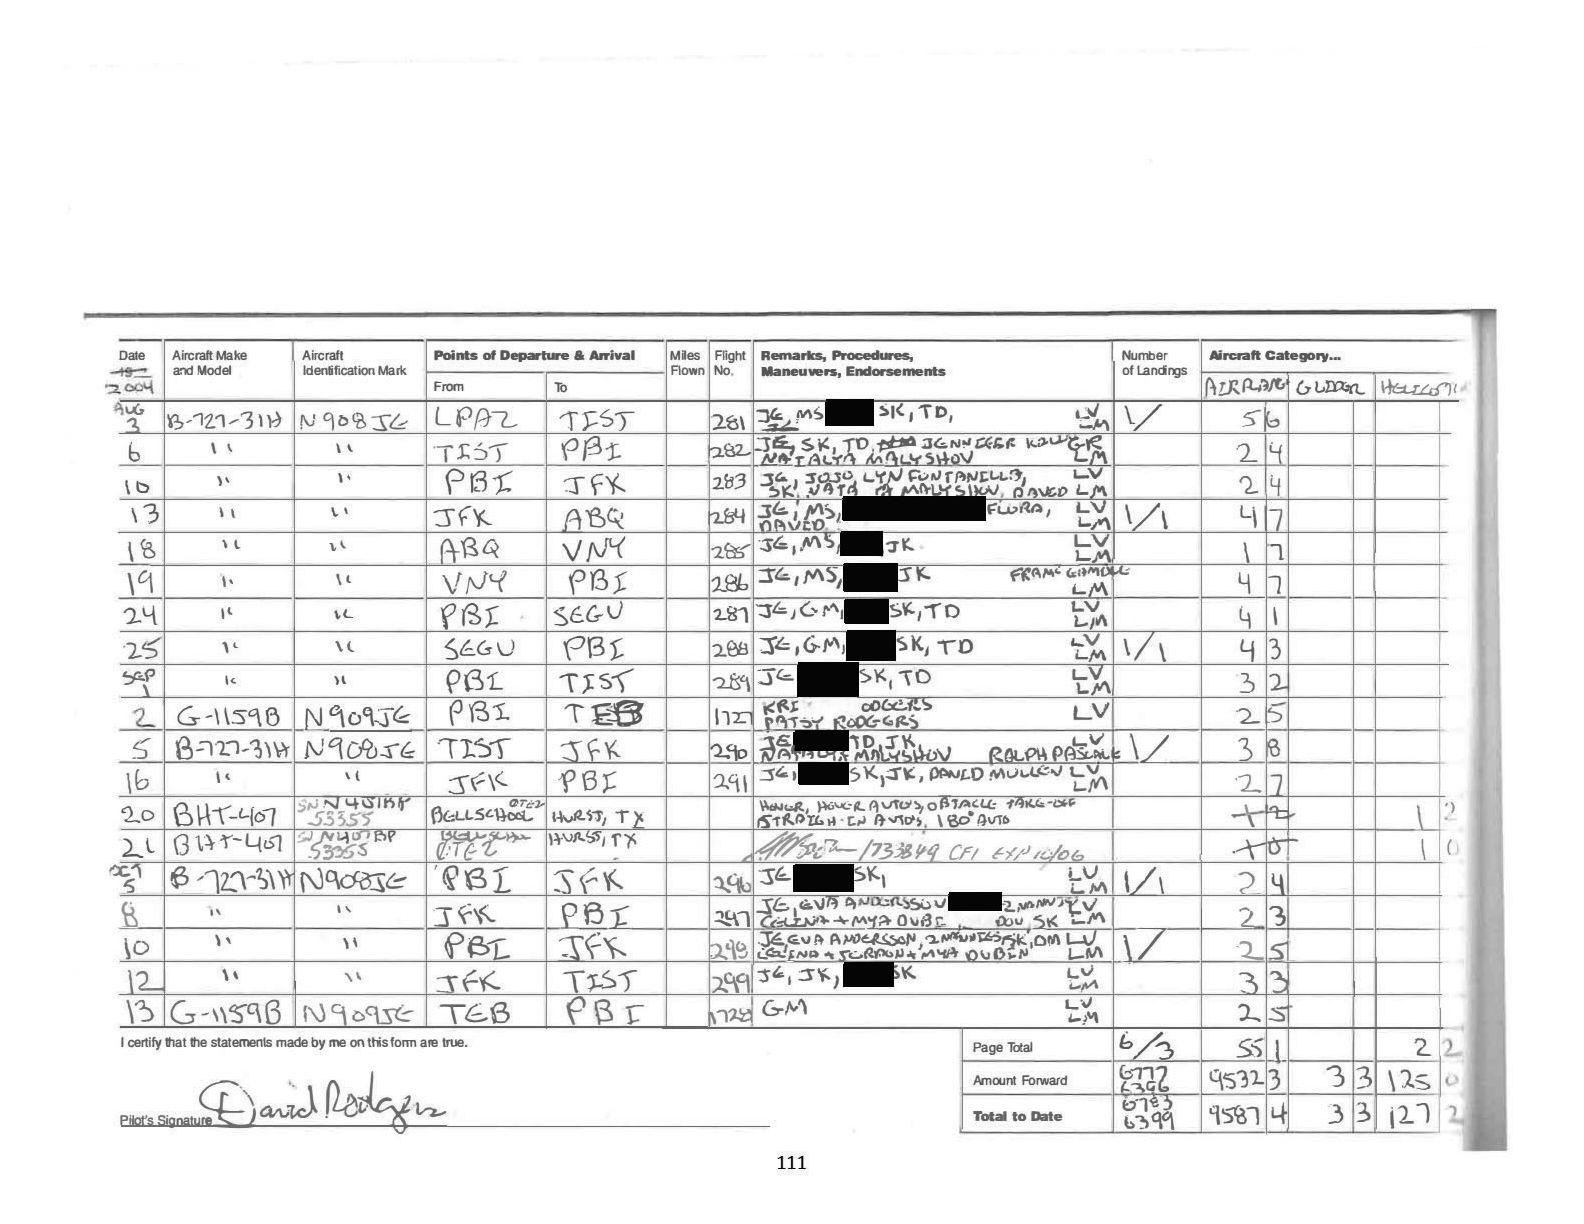 Date Aircraft Make Aircraft Points of Departure & Arrival Miles Flight Remarks, Procedures, Number Aircraft Category...
19 and Model Identification Mark Flown No. Maneuvers, Endorsements of Landings
2004 From To AIRPLANE GLIDER HELICOPTER
AUG 3 B-727-31H N908JE LPAZ TIST 281 JE, MS SK, TD, LV LM 1/ 5 6
6 " " TIST PBI 282 JE, SK, TD, JENNIFER GR
NATALYA MALYSHOV LM 2 4
10 " " PBI JFK 283 JE, JOJO, LYN FONTANELLA, LV
SK, NATALYA MALYSHOV, DAVED LM 2 4
13 " " JFK ABQ 284 JE, MS, FLORA, LV
DAVED LM 1/1 4 7
18 " " ABQ VNY 285 JE, MS, JK LV LM 1 7
19 " " VNY PBI 286 JE, MS, JK LM 4 7
24 " " PBI SEGU 287 JE, GM, SK, TD LV LM 4 1
25 " " SEGU PBI 288 JE, GM, SK, TD LV LM 1/1 4 3
SEP 1 " " PBI TIST 289 JE SK, TD LV LM 3 2
2 G-1159B N909JE PBI TEB 1727 KRI ODGERS
PATSY RODGERS LV 2 5
5 B-727-31H N908JE TIST JFK 290 JE TD, JK, LV
NATALYA MALYSHOV RALPH PASCALE 1/ 3 8
16 " " JFK PBI 291 JE, SK, JK, DAVID MULLEN LV LM 2 7
20 BHT-407 SN N401BP 53355 BELLSCHOOL HURST, TX HOVER, HOVER AUTO'S, OBSTACLE TAKE-OFF
STRAIGH-IN AUTO'S, 180° AUTO 1 2 1 2
21 BHT-407 SN N407BP 53355 BELLSCHOOL HURST, TX 1733849 CFI EXP 10/06 1 0 1 0
OCT 5 B-727-31H N908JE PBI JFK 296 JE SK, LV LM 1/1 2 4
8 " " JFK PBI 297 JE, EVA ANDERSSON 2 NANNIES LV
CELINA + MYA DUBI SK LM 2 3
10 " " PBI JFK 298 JE, EVA ANDERSSON, 2 NANNIES, SK, DM LV
CELINA + JORDON + MYA DUBIN LM 1/ 2 5
12 " " JFK TIST 299 JE, JK, SK LV LM 3 3
13 G-1159B N909JE TEB PBI 1728 GM LV LM 2 5
I certify that the statements made by me on this form are true.
Page Total 6/3 55 1 2 2
Amount Forward 6777 6396 9532 3 3 3 125 0
Pilot's Signature David Rodgers
Total to Date 6783 6399 9587 4 3 3 127 2
111